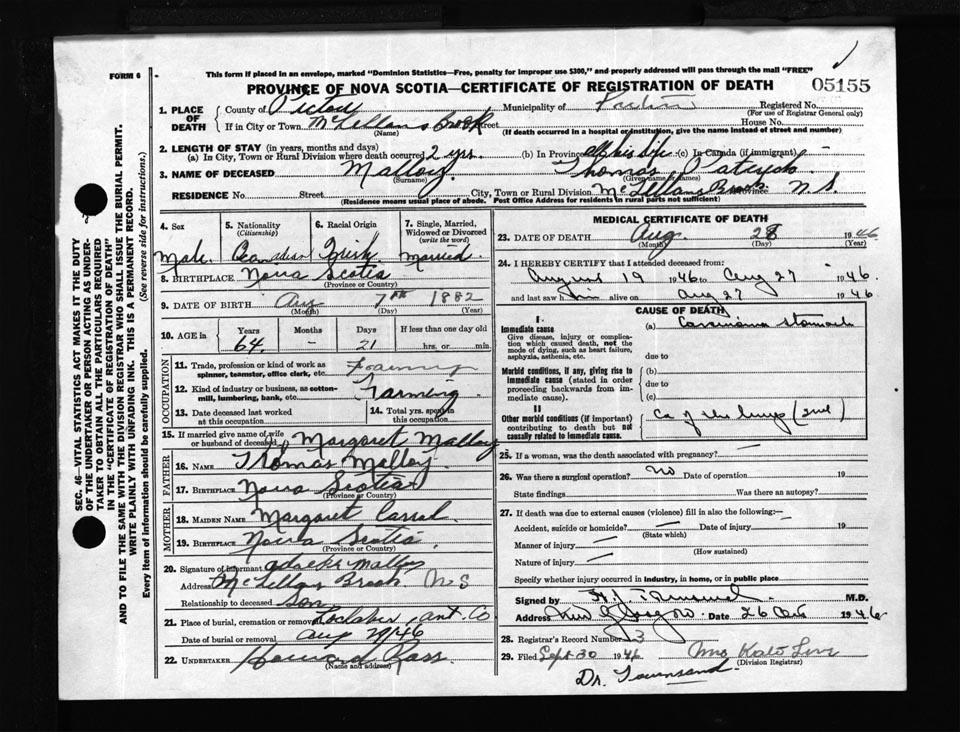 FORM 6
This form if placed in an envelope, marked "Dominion Statistics—Free, penalty for improper use $300," and properly addressed will pass through the mail "FREE"
PROVINCE OF NOVA SCOTIA—CERTIFICATE OF REGISTRATION OF DEATH
05155
1. PLACE OF DEATH
County of Pictou
Municipality of
Registered No.
(For use of Registrar General only)
If in City or Town McLellans Brook Street
House No.
(Name)
(If death occurred in a hospital or institution, give the name instead of street and number)
2. LENGTH OF STAY (in years, months and days)
(a) In City, Town or Rural Division where death occurred 2 yrs. (b) In Province all his life (c) In Canada (if immigrant)
3. NAME OF DECEASED Malloy Thomas
(Surname) (Given name or names)
RESIDENCE No. Street City, Town or Rural Division McLellans Brook Province N.S
(Residence means usual place of abode. Post Office Address for residents in rural parts not sufficient)
4. Sex
Male
5. Nationality
(Citizenship)
Canadian
6. Racial Origin
Irish
7. Single, Married, Widowed or Divorced
(write the word)
Married
8. BIRTHPLACE Nova Scotia
(Province or Country)
9. DATE OF BIRTH Aug 7th 1882
(Month) (Day) (Year)
10. AGE in
Years Months Days If less than one day old
64 - 21 hrs. or min.
OCCUPATION
11. Trade, profession or kind of work as spinner, teamster, office clerk, etc.
12. Kind of industry or business, as cotton-mill, lumbering, bank, etc. Farming
13. Date deceased last worked at this occupation
14. Total yrs. spent in this occupation
15. If married give name of wife or husband of deceased Margaret Malloy
FATHER
16. NAME Thomas Malloy
17. BIRTHPLACE Nova Scotia
(Province or Country)
MOTHER
18. MAIDEN NAME Margaret
19. BIRTHPLACE Nova Scotia
(Province or Country)
20. Signature of informant Malloy
Address McLellans Brook N S
Relationship to deceased Son
21. Place of burial, cremation or removal Lochaber, Ant. Co
Date of burial or removal Aug 29/46
22. UNDERTAKER Howard Ross
(Name and address)
MEDICAL CERTIFICATE OF DEATH
23. DATE OF DEATH Aug. 28 1946
(Month) (Day) (Year)
24. I HEREBY CERTIFY that I attended deceased from:
August 19 1946 to Aug 27 1946
and last saw him alive on Aug 27 1946
CAUSE OF DEATH
I
Immediate cause
Give disease, injury or complication which caused death, not the mode of dying, such as heart failure, asphyxia, asthenia, etc.
(a) Carcinoma stomach
due to
Morbid conditions, if any, giving rise to immediate cause (stated in order proceeding backwards from immediate cause).
(b)
due to
(c)
II
Other morbid conditions (if important) contributing to death but not causally related to immediate cause.
Ca of the lungs (2nd)
25. If a woman, was the death associated with pregnancy?
26. Was there a surgical operation? no Date of operation 19
State findings Was there an autopsy?
27. If death due to external causes (violence) fill in also the following:—
Accident, suicide or homicide? Date of injury 19
(State which)
Manner of injury
(How sustained)
Nature of injury
Specify whether injury occurred in industry, in home, or in public place
Signed by M.D.
Address New Glasgow Date 26 1946
28. Registrar's Record Number
29. Filed Sept 30 1946
(Division Registrar)
Dr. Townsend
SEC. 46—VITAL STATISTICS ACT MAKES IT THE DUTY
OF THE UNDERTAKER OR PERSON ACTING AS UNDER-
TAKER TO OBTAIN ALL THE PARTICULARS REQUIRED
IN THE "CERTIFICATE OF REGISTRATION OF DEATH"
AND TO FILE THE SAME WITH THE DIVISION REGISTRAR WHO SHALL ISSUE THE BURIAL PERMIT.
WRITE PLAINLY WITH UNFADING INK. THIS IS A PERMANENT RECORD.
Every item of information should be carefully supplied. (See reverse side for instructions.)